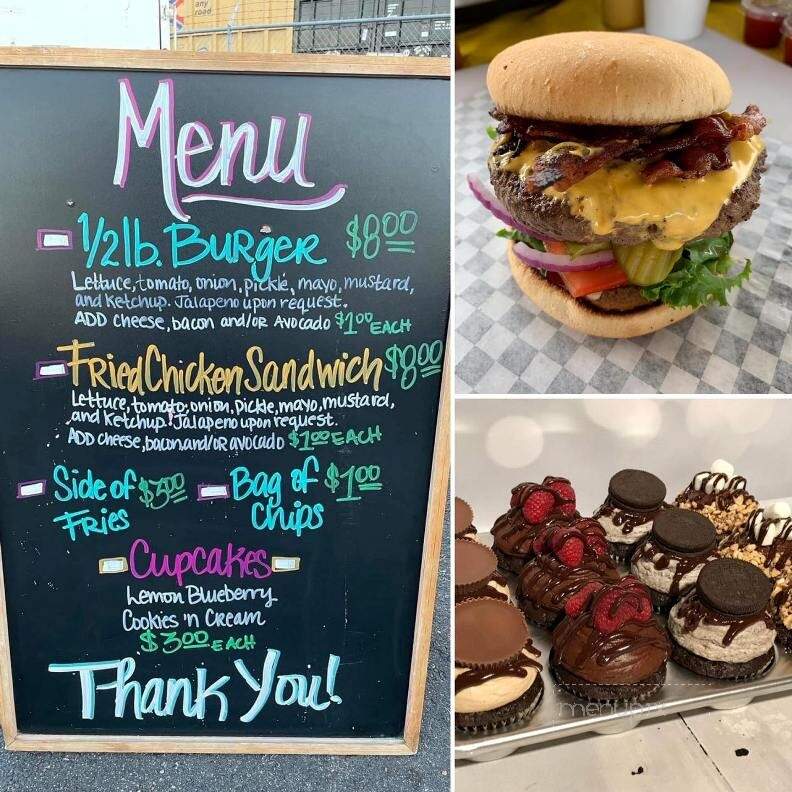 any
road
Menu
1/2lb. Burger $8.00
Lettuce, tomato, onion, pickle, mayo, mustard,
and ketchup. Jalapeno upon request.
ADD cheese, bacon and/or Avocado $1.00 EACH
Fried Chicken Sandwich $8.00
Lettuce, tomato, onion, pickle, mayo, mustard,
and ketchup. Jalapeno upon request.
ADD cheese, bacon and/or avocado $1.00 EACH
Side of Fries $3.00
Bag of Chips $1.00
Cupcakes
Lemon Blueberry
Cookies 'n Cream
$3.00 EACH
Thank You!